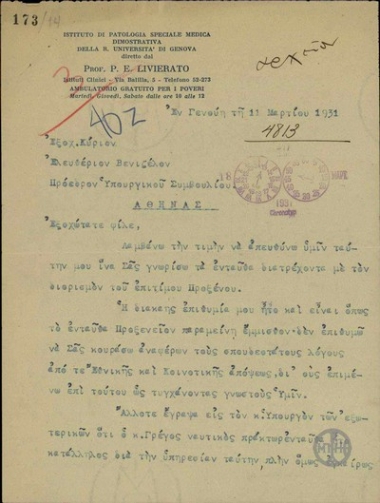 173/14
ISTITUTO DI PATOLOGIA SPECIALE MEDICA
DIMOSTRATIVA
DELLA R. UNIVERSITA' DI GENOVA
diretto dal
PROF. P. E. LIVIERATO
Istituti Clinici - Via Balilla, 5 - Telefono 52-273
AMBULATORIO GRATUITO PER I POVERI
Martedì, Giovedì, Sabato dalle ore 10 alle 12
402
Ἐν Γενούῃ τῇ 11 Μαρτίου 1931
4813
Ἐξοχ. Κύριον
Ἐλευθέριον Βενιζέλον
Πρόεδρον Ὑπουργικοῦ Συμβουλίου
ΑΘΗΝΑΣ
18
ΜΑΡ
1931
Ἐξοχώτατε φίλε,
Λαμβάνω τήν τιμήν νά ἀπευθύνω ὑμῖν ταύ-
την μου ἵνα Σᾶς γνωρίσω τά ἐνταῦθα διατρέχοντα μέ τόν
διορισμόν τοῦ ἐπιτίμου Προξένου.
Ἡ διακαής ἐπιθυμία μου ἦτο καί εἶναι ὅπως
τό ἐνταῦθα Προξενεῖον παραμείνῃ ἔμμισθον· δέν ἐπιθυμῶ
νά Σᾶς κουράσω ἀναφέρων τούς σπουδαιοτάτους λόγους
ἀπό τε Ἐθνικῆς καί Κοινοτικῆς ἀπόψεως, δι' οὕς ἐπιμέ-
νω ἐπί τούτου ὡς τυγχάνοντας γνωστούς Ὑμῖν.
Ἄλλοτε ἔγραψα εἰς τόν κ. Ὑπουργόν τῶν Ἐξω-
τερικῶν ὅτι ὁ κ. Γρέγος ναυτικός πράκτωρ ἐνταῦθα
κατάλληλος διά τήν ὑπηρεσίαν ταύτην πλήν ὅμως